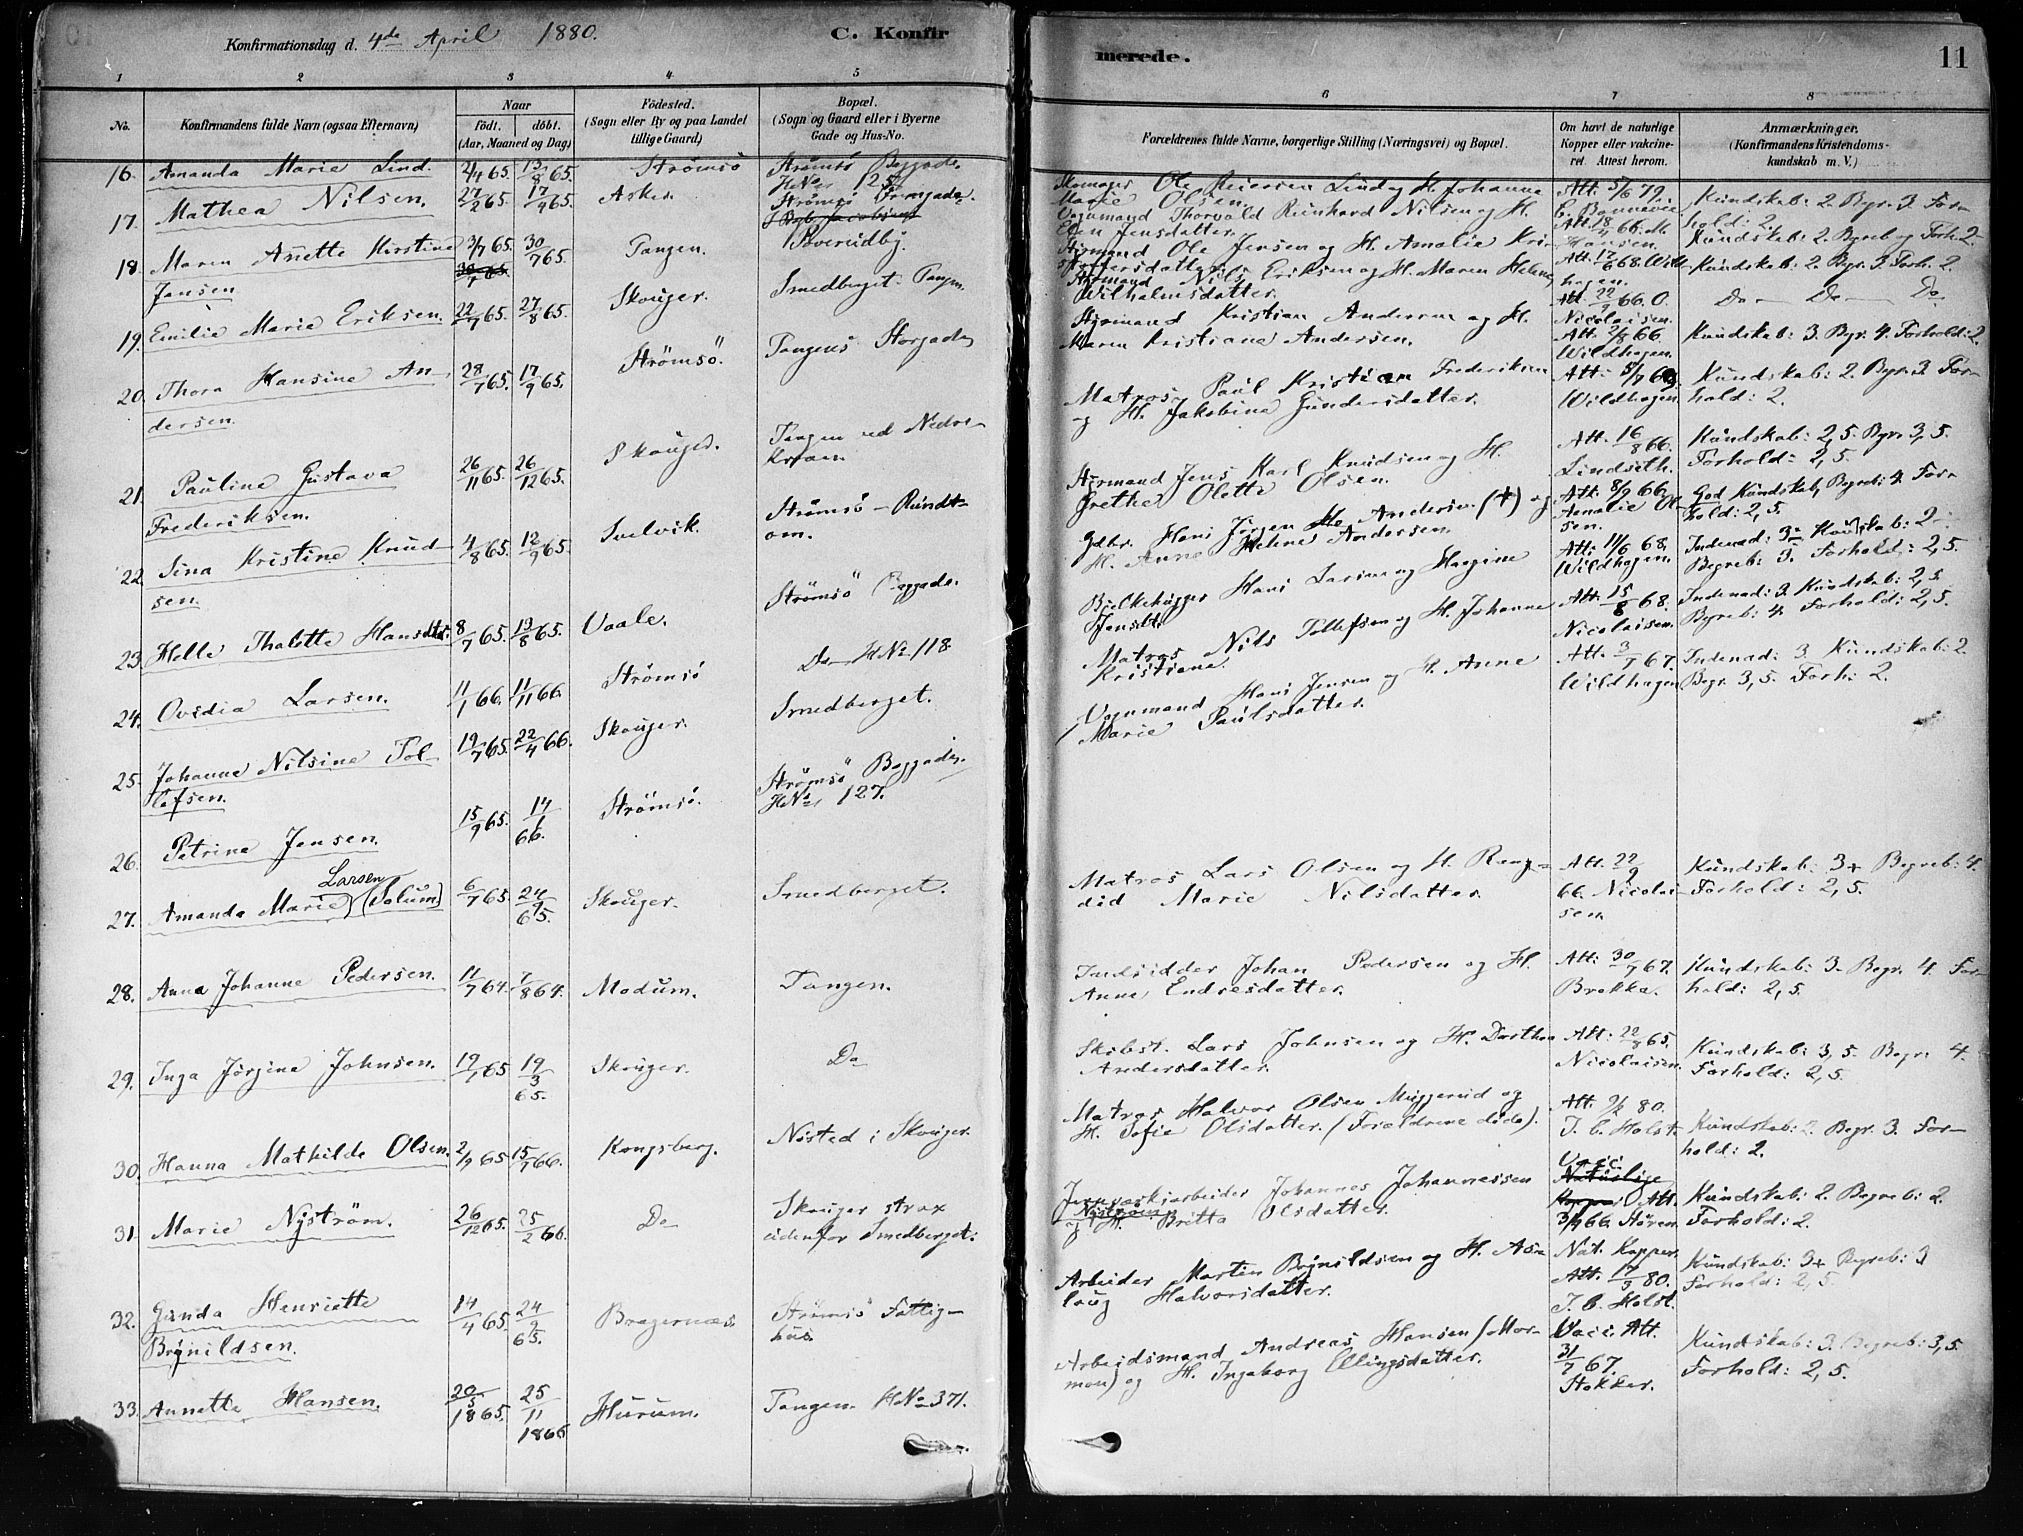 Konfirmationsdag d. 4de April 1880.
C. Konfir
merede.
11
1 2 3 4 5 6 7 8
No.
Konfirmandens fulde Navn (ogsaa Efternavn)
Naar
født. døbt.
(Aar, Maaned og Dag)
Fødested.
(Sogn eller By og paa Landet
tillige Gaard.)
Bopæl.
(Sogn og Gaard eller i Byerne
Gade og Hus-No.
Forældrenes fulde Navne, borgerlige Stilling (Næringsvei) og Bopæl.
Om havt de naturlige
Kopper eller vakcine-
ret. Attest herom.
Anmærkninger.
(Konfirmandens Kristendoms-
kundskab m. V.)
16. Amanda Marie Lind. 2/4 65. 13/8 65. Strømsø Strømsø Baggade.
HNo 125
Skomager Ole Reiersen Lind og H. Johanne
Marie Olsen.
Att. 5/6 79.
Kundskab: 2. Begr. 3. For-
hold: 2.
17. Mathea Nilsen. 27/2 65. 17/4 65. Asker
Vognmand Thorvald Reinhard Nilsen og H.
Elen Jensdatter.
Att. 18/4 66. M.
Hansen.
Kundskab: 2. Begreb og Forh. 2
18. Maren Anette Kirstine
Jensen
3/7 65. 30/7 65. Tangen.
Styrmand Ole Jensen og H. Amalie Kri-
stoffersdatter
Att. 17/6 68. Wild-
hagen.
Kundskab: 2. Begr. 3. Forh. 2.
19. Emilie Marie Eriksen. 22/7 65. 27/8 65. Skouger. Smedberget. Tangen.
Styrmand Nils Eriksen og H. Maren Helene
Wilhelmsdatter.
Att. 22/9 66. O.
Nicolaisen.
Do Do Do
20. Thora Hansine An-
dersen.
28/7 65. 17/9 65. Strømsø. Tangens Storgade
Styrmand Kristian Andersen og H.
Maren Kristiane Andersen.
Att. 2/8 66.
Wildhagen.
Kundskab: 3. Begr. 4. Forhold: 2.
21. Pauline Gustava
Frederiksen.
26/11 65. 26/12 65. Skouger. Tangen ved Nedre
Kran.
Matros Paul Kristian Frederiksen
og H. Jakobine Gundersdatter.
Att. 5/7 69.
Wildhagen
Kundskab: 2. Begr. 3. For-
hold: 2.
22. Sina Kristine Knud-
sen.
4/8 65. 12/9 65. Svelvik. Strømsø - Rundt-
om.
Styrmand Jens Karl Knudsen og H.
Grethe Olette Olsen.
Att. 16/8 66.
Lindseth.
Kundskab: 2,5. Begr. 3,5.
Forhold: 2,5.
23. Helle Thalette Hansdtr. 8/7 65. 13/8 65. Vaale. Strømsø Baggade.
Gdbr. Hans Jørgen Andersen (†) og
H. Anne Helene Andersen.
Att. 8/9 66.
Amalie Ol-
sen.
God Kundskab, Begreb: 4. For-
hold: 2,5.
24. Ovidia Larsen. 11/1 66. 11/11 66. Strømsø Do HNo 118.
Bjelkehugger Hans Larsen og Hargine
Jensdtr.
Att. 11/6 68.
Wildhagen.
Indenad: 3 Kundskab: 2-
Begreb: 3. Forhold: 2,5.
25. Johanne Nilsine Tol-
lefsen.
19/7 65. 22/4 66. Skouger. Smedberget.
Matros Nils Tollefsen og H. Johanne
Kristiane.
Att. 15/8 68.
Nicolaisen.
Indenad: 3 Kundskab: 2,5.
Begreb: 4. Forhold: 2,5.
26. Petrine Jensen. 15/9 65. 14/1 66. Strømsø. Strømsø Baggade.
HNo 127.
Vognmand Hans Jensen og H. Anne
Marie Paulsdatter.
Att. 3/7 67.
Wildhagen
Indenad: 3. Kundskab: 2.
Begr. 3,5. Forh: 2.
27. Amanda Marie Larsen (Solum) 6/7 65. 24/9 65. Skouger. Smedberget.
Matros Lars Olsen og H. Rang-
did Marie Nilsdatter.
Att. 22/9
66. Nicolai-
sen.
Kundskab: 3+ Begreb: 4.
Forhold: 2,5.
28. Anna Johanne Pedersen. 11/7 64. 7/8 64. Modum. Tangen.
Indsidder Johan Pedersen og H.
Anne Endresdatter.
Att: 30/7 67.
Brekke.
Kundskab: 3. Begr. 4. For-
hold: 2,5.
29. Inga Jørgine Johnsen. 19/1 65 19/3 65. Skouger. Do
Skibst. Lars Johnsen og H. Dorthea
Andersdatter.
Att: 22/8 65.
Nicolaisen.
Kundskab: 3,5. Begr. 4.
Forhold: 2,5.
30. Hanna Mathilde Olsen. 2/9 65 15/7 66. Kongsberg. Nøsted i Skouger.
Matros Halvor Olsen Muggerud og
H. Sofie Olsdatter. (Forældrene døde).
Att. 9/2 80.
J. C. Holst.
Kundskab: 2. Begr. 3. For-
hold: 2.
31. Marie Nystrøm. 26/12 65. 25/2 66. Do Skouger strax
udenfor Smedberget.
Johannes Johannessen
Nystrøm og H. Britta Olsdatter.
Vacc.
Naturlige
Kopper Att.
3/9 66. Støren.
Kundskab: 2. Begreb: 2.
Forhold: 2.
32. Gunda Henriette
Brynildsen.
14/4 65. 24/9 65. Bragernæs. Strømsø Fattig-
hus.
Arbeider Martin Brynildsen og H. As-
laug Halvorsdatter.
Nat. Kopper.
Att. 17/3 80.
J. C. Holst.
Kundskab: 3+ Begreb: 3
Forhold: 2,5.
33. Annette Hansen. 20/5 1865. 25/11 1865 Hurum. Tangen HNo 371.
Arbeidsmand Andreas Hansen (Mor-
mon) og H. Ingeborg Ellingsdatter.
Vacc. Att.
31/7 67.
Stokker.
Kundskab: 3. Begreb: 3,5.
Forhold: 2,5.